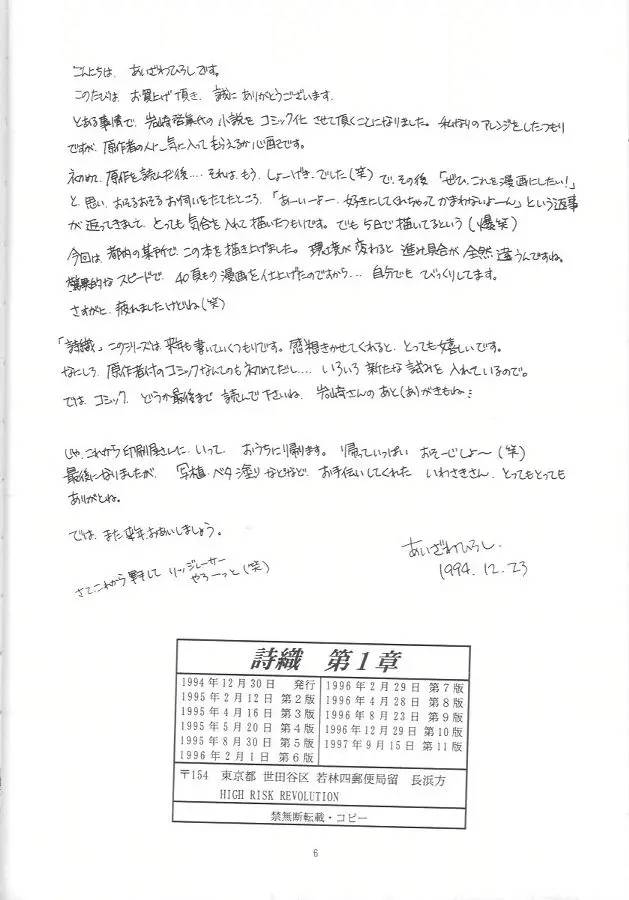 こんにちは、あいざわひろしです。
このたびは、お買上げ頂き、誠にありがとうございます。
とある事情で、岩崎啓眞代の小説をコミック化させて頂くことになりました。私なりのアレンジをしたつもり
ですが、原作者の人に気に入ってもらえるか心配です。
初めて、原作を読んだ後‥‥それは、もう、しょーげき、でした(笑)で、その後「ぜひ、これを漫画にしたい!」
と、思い、おそるおそるお伺いをたてたところ、「あーいーよー、好きにしてくれちゃってかまわないよーん」という返事
が返ってきまして、とっても気合を入れて描いたつもりです。でも5日で描いてるという(爆笑)
今回は、都内の某所で、この本を描き上げました。環境が変わると進み具合が全然違うんですね。
驚異的なスピードで、40頁もの漫画を仕上げたのですから‥‥自分でもびっくりしてます。
さすがに、疲れましたけどね(笑)
「詩織」このシリーズは来年も書いていくつもりです。感想きかせてくれると、とっても嬉しいです。
なにしろ、原作者付のコミックなんてのも初めてだし‥‥いろいろ新たな試みを入れているので。
では、コミック、どうか最後まで読んで下さいね、岩崎さんのあと(あ)がきもね
じゃ、これから印刷屋さんに、いって、おうちに帰ります。帰っていっぱいおそーじしよ〜(笑)
最後になりましたが、写植・ベタ塗りなどなど、お手伝いしてくれた いわさきさん、とってもとっても
ありがとね。
では、また来年、おあいしましょう。
さて、これから して リッジレーサー
やろーっと(笑)
あいざわひろし
1994.12.23
詩織 第1章
1994年12月30日 発行
1995年2月12日 第2版
1995年4月16日 第3版
1995年5月20日 第4版
1995年8月30日 第5版
1996年2月1日 第6版
1996年2月29日 第7版
1996年4月28日 第8版
1996年8月23日 第9版
1996年12月29日 第10版
1997年9月15日 第11版
〒154 東京都 世田谷区 若林四郵便局留 長浜方
HIGH RISK REVOLUTION
禁無断転載・コピー
6